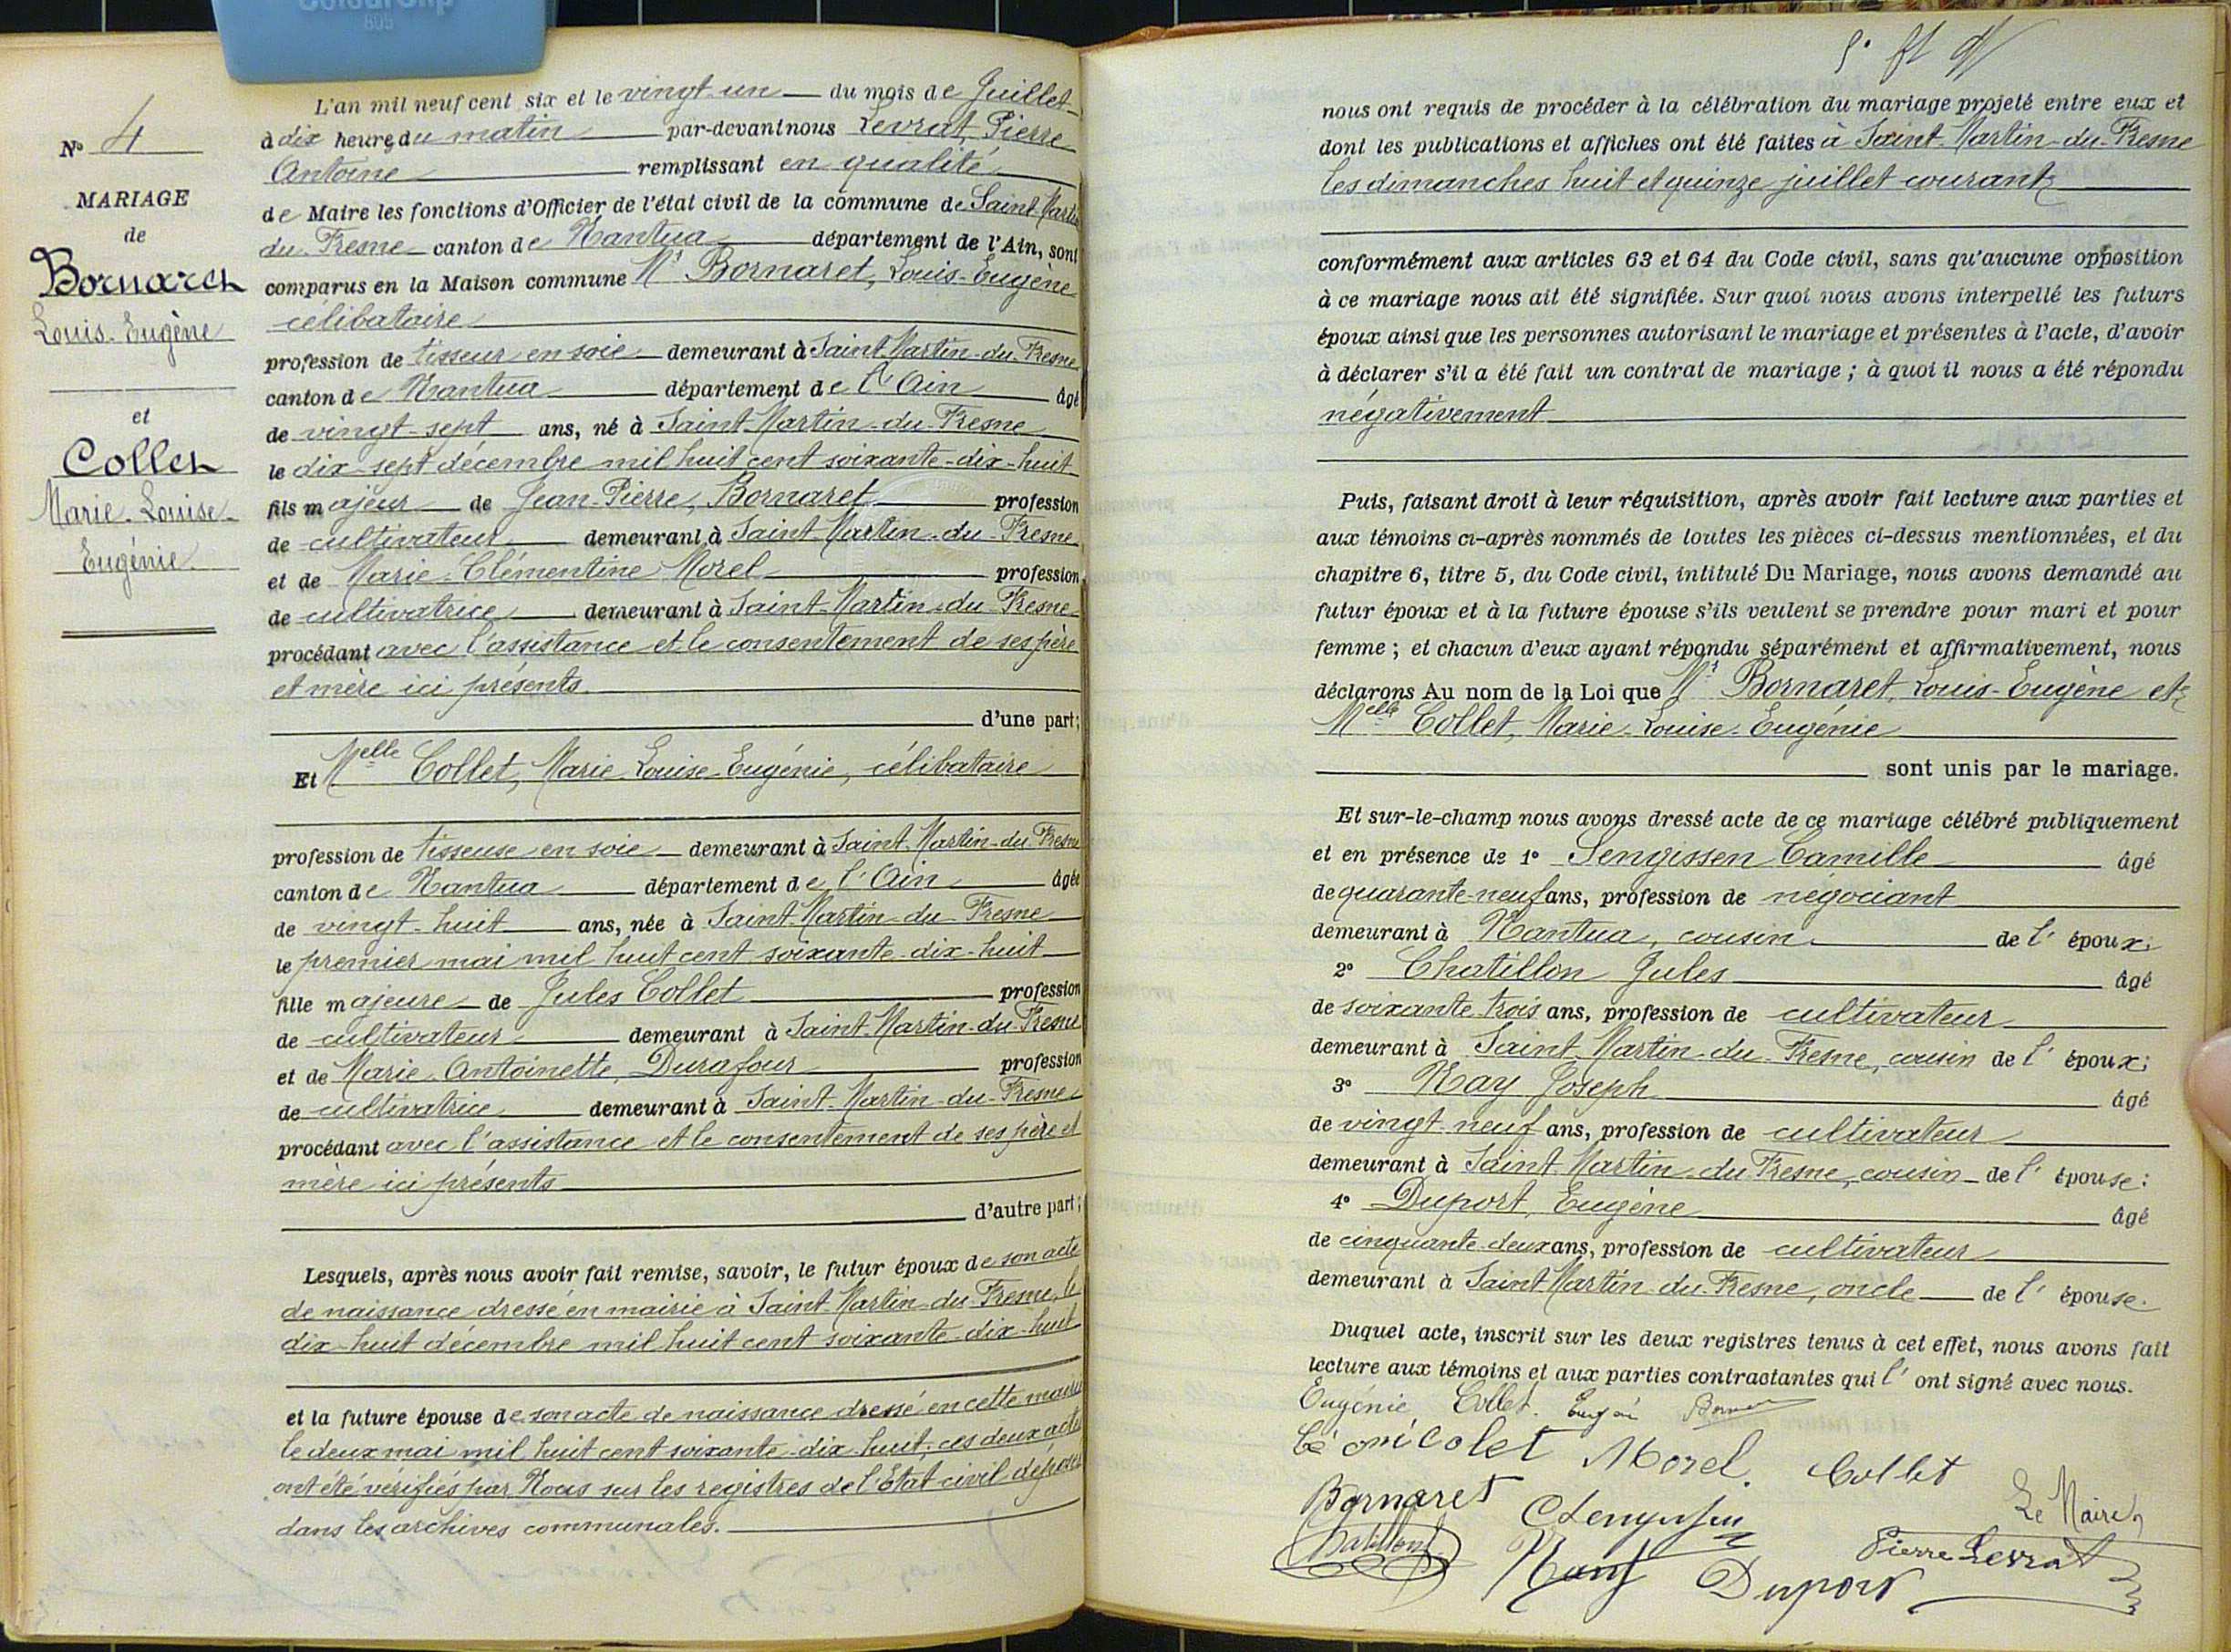 ColourClip
695
Nº 4
MARIAGE
de
Bornaret
Louis-Eugène
et
Collet
Marie-Louise-
Eugénie
L'an mil neuf cent six et le vingt-un du mois de Juillet
à dix heure du matin par-devant nous Levrat, Pierre
Antoine remplissant en qualité
de Maire les fonctions d'Officier de l'état civil de la commune de Saint-Martin
du-Fresne canton de Nantua département de l'Ain, sont
comparus en la Maison commune Mr Bornaret, Louis-Eugène
célibataire
profession de tisseur en soie demeurant à Saint-Martin-du-Fresne
canton de Nantua département de l'Ain âgé
de vingt-sept ans, né à Saint-Martin-du-Fresne
le dix-sept décembre mil huit cent soixante-dix-huit
fils majeur de Jean-Pierre, Bornaret profession
de cultivateur demeurant à Saint-Martin-du-Fresne
et de Marie-Clémentine Morel profession
de cultivatrice demeurant à Saint-Martin-du-Fresne
procédant avec l'assistance et le consentement de ses père
et mère ici présents.
d'une part;
Et Melle Collet, Marie-Louise-Eugénie, célibataire
profession de tisseuse en soie demeurant à Saint-Martin-du-Fresne
canton de Nantua département de l'Ain âgée
de vingt-huit ans, née à Saint-Martin-du-Fresne
le premier mai mil huit cent soixante-dix-huit
fille majeure de Jules Collet profession
de cultivateur demeurant à Saint-Martin-du-Fresne
et de Marie-Antoinette, Durafour profession
de cultivatrice demeurant à Saint-Martin-du-Fresne
procédant avec l'assistance et le consentement de ses père et
mère ici présents
d'autre part;
Lesquels, après nous avoir fait remise, savoir, le futur époux de son acte
de naissance dressé en mairie à Saint-Martin-du-Fresne, le
dix-huit décembre mil huit cent soixante-dix-huit
et la future épouse de son acte de naissance dressé en cette mairie
le deux mai mil huit cent soixante-dix-huit; ces deux actes
ont été vérifiés par Nous sur les registres de l'Etat civil déposés
dans les archives communales.
nous ont requis de procéder à la célébration du mariage projeté entre eux et
dont les publications et affiches ont été faites à Saint-Martin-du-Fresne
les dimanches huit et quinze juillet courant
conformément aux articles 63 et 64 du Code civil, sans qu'aucune opposition
à ce mariage nous ait été signifiée. Sur quoi nous avons interpellé les futurs
époux ainsi que les personnes autorisant le mariage et présentes à l'acte, d'avoir
à déclarer s'il a été fait un contrat de mariage; à quoi il nous a été répondu
négativement
Puis, faisant droit à leur réquisition, après avoir fait lecture aux parties et
aux témoins ci-après nommés de toutes les pièces ci-dessus mentionnées, et du
chapitre 6, titre 5, du Code civil, intitulé Du Mariage, nous avons demandé au
futur époux et à la future épouse s'ils veulent se prendre pour mari et pour
femme; et chacun d'eux ayant répondu séparément et affirmativement, nous
déclarons Au nom de la Loi que Mr Bornaret, Louis-Eugène et
Melle Collet, Marie-Louise-Eugénie
sont unis par le mariage.
Et sur-le-champ nous avons dressé acte de ce mariage célébré publiquement
et en présence de 1º Sengissen Camille âgé
de quarante-neuf ans, profession de négociant
demeurant à Nantua, cousin de l'époux;
2º Chatillon Jules âgé
de soixante-trois ans, profession de cultivateur
demeurant à Saint-Martin-du-Fresne, cousin de l'époux;
3º Nay Joseph âgé
de vingt-neuf ans, profession de cultivateur
demeurant à Saint-Martin-du-Fresne, cousin de l'épouse:
4º Duport, Eugène âgé
de cinquante-deux ans, profession de cultivateur
demeurant à Saint-Martin-du-Fresne, oncle de l'épouse.
Duquel acte, inscrit sur les deux registres tenus à cet effet, nous avons fait
lecture aux témoins et aux parties contractantes qui l'ont signé avec nous.
Eugénie Collet.
Morel. Collet
Bornaret
Le Maire,
Chatillon Nay Duport Pierre Levrat